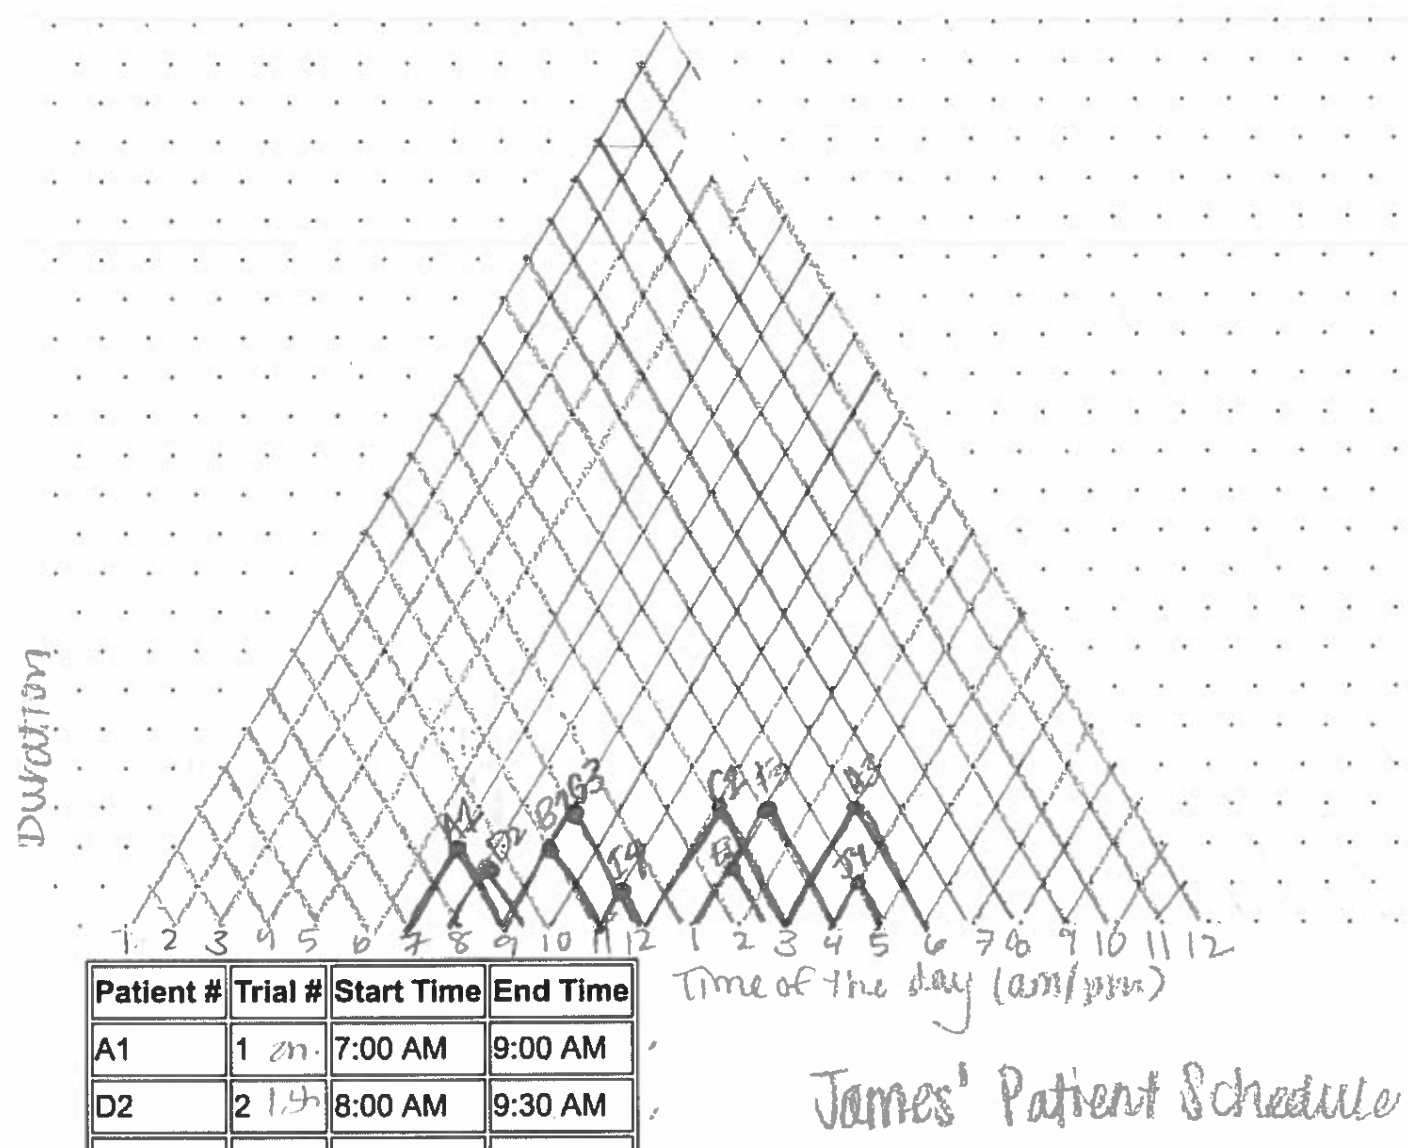 A1
D2
B2G3
I4
C1
J4
Duration
1 2 3 4 5 6 7 8 9 10 11 12 1 2 3 4 5 6 7 8 9 10 11 12
Time of the day (am/pm)
Patient # Trial # Start Time End Time
A1 1 7:00 AM 9:00 AM
D2 2 8:00 AM 9:30 AM
James' Patient Schedule